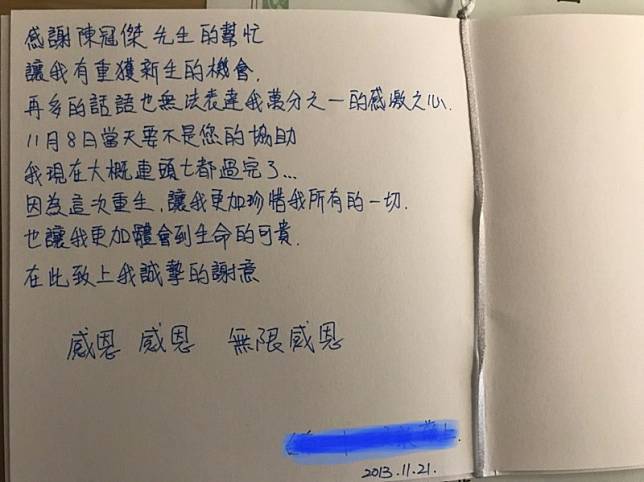 感謝陳冠傑先生的幫忙
讓我有重獲新生的機會.
再多的話語也無法表達我萬分之一的感激之心.
11月8日當天要不是您的協助
我現在大概連頭七都過完了...
因為這次重生,讓我更加珍惜我所有的一切.
也讓我更加體會到生命的可貴.
在此致上我誠摯的謝意
感恩 感恩 無限感恩
2013.11.21.